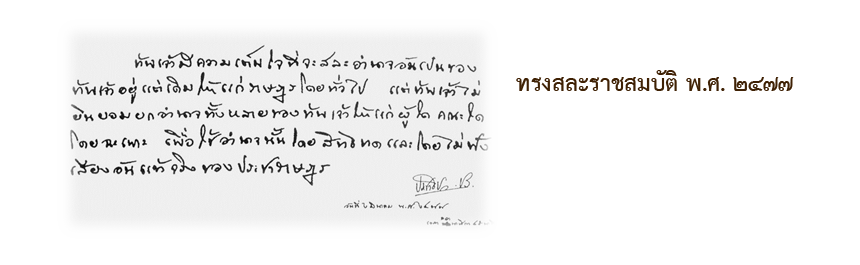 ข้าพเจ้ามีความเต็มใจที่จะสละอำนาจอันเป็นของ
ข้าพเจ้าอยู่แต่เดิมให้แก่ราษฎรโดยทั่วไป แต่ข้าพเจ้าไม่
ยินยอมยกอำนาจทั้งหลายของข้าพเจ้าให้แก่ผู้ใด คณะใด
โดยฉะเพาะ เพื่อใช้อำนาจนั้นโดยสิทธิขาดและโดยไม่ฟัง
เสียงอันแท้จริงของประชาราษฎร
ทรงสละราชสมบัติ พ.ศ. ๒๔๗๗
ประชาธิปก ปร.
พ.ศ. ๒๔๗๗